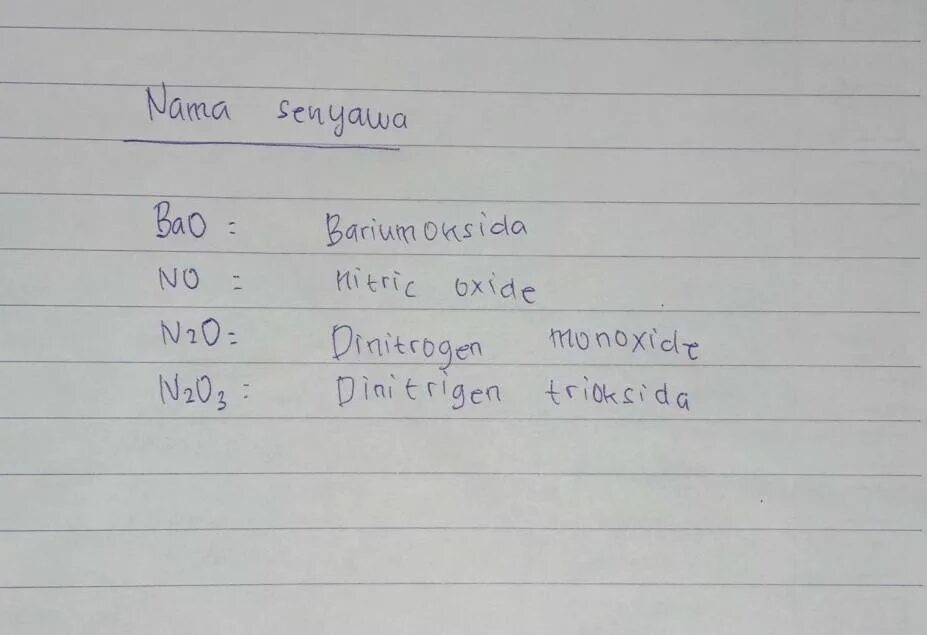 Nama senyawa
BaO : Bariumoksida
NO = nitric oxide
N2O = Dinitrogen monoxide
N2O3 : Dinitrigen trioksida